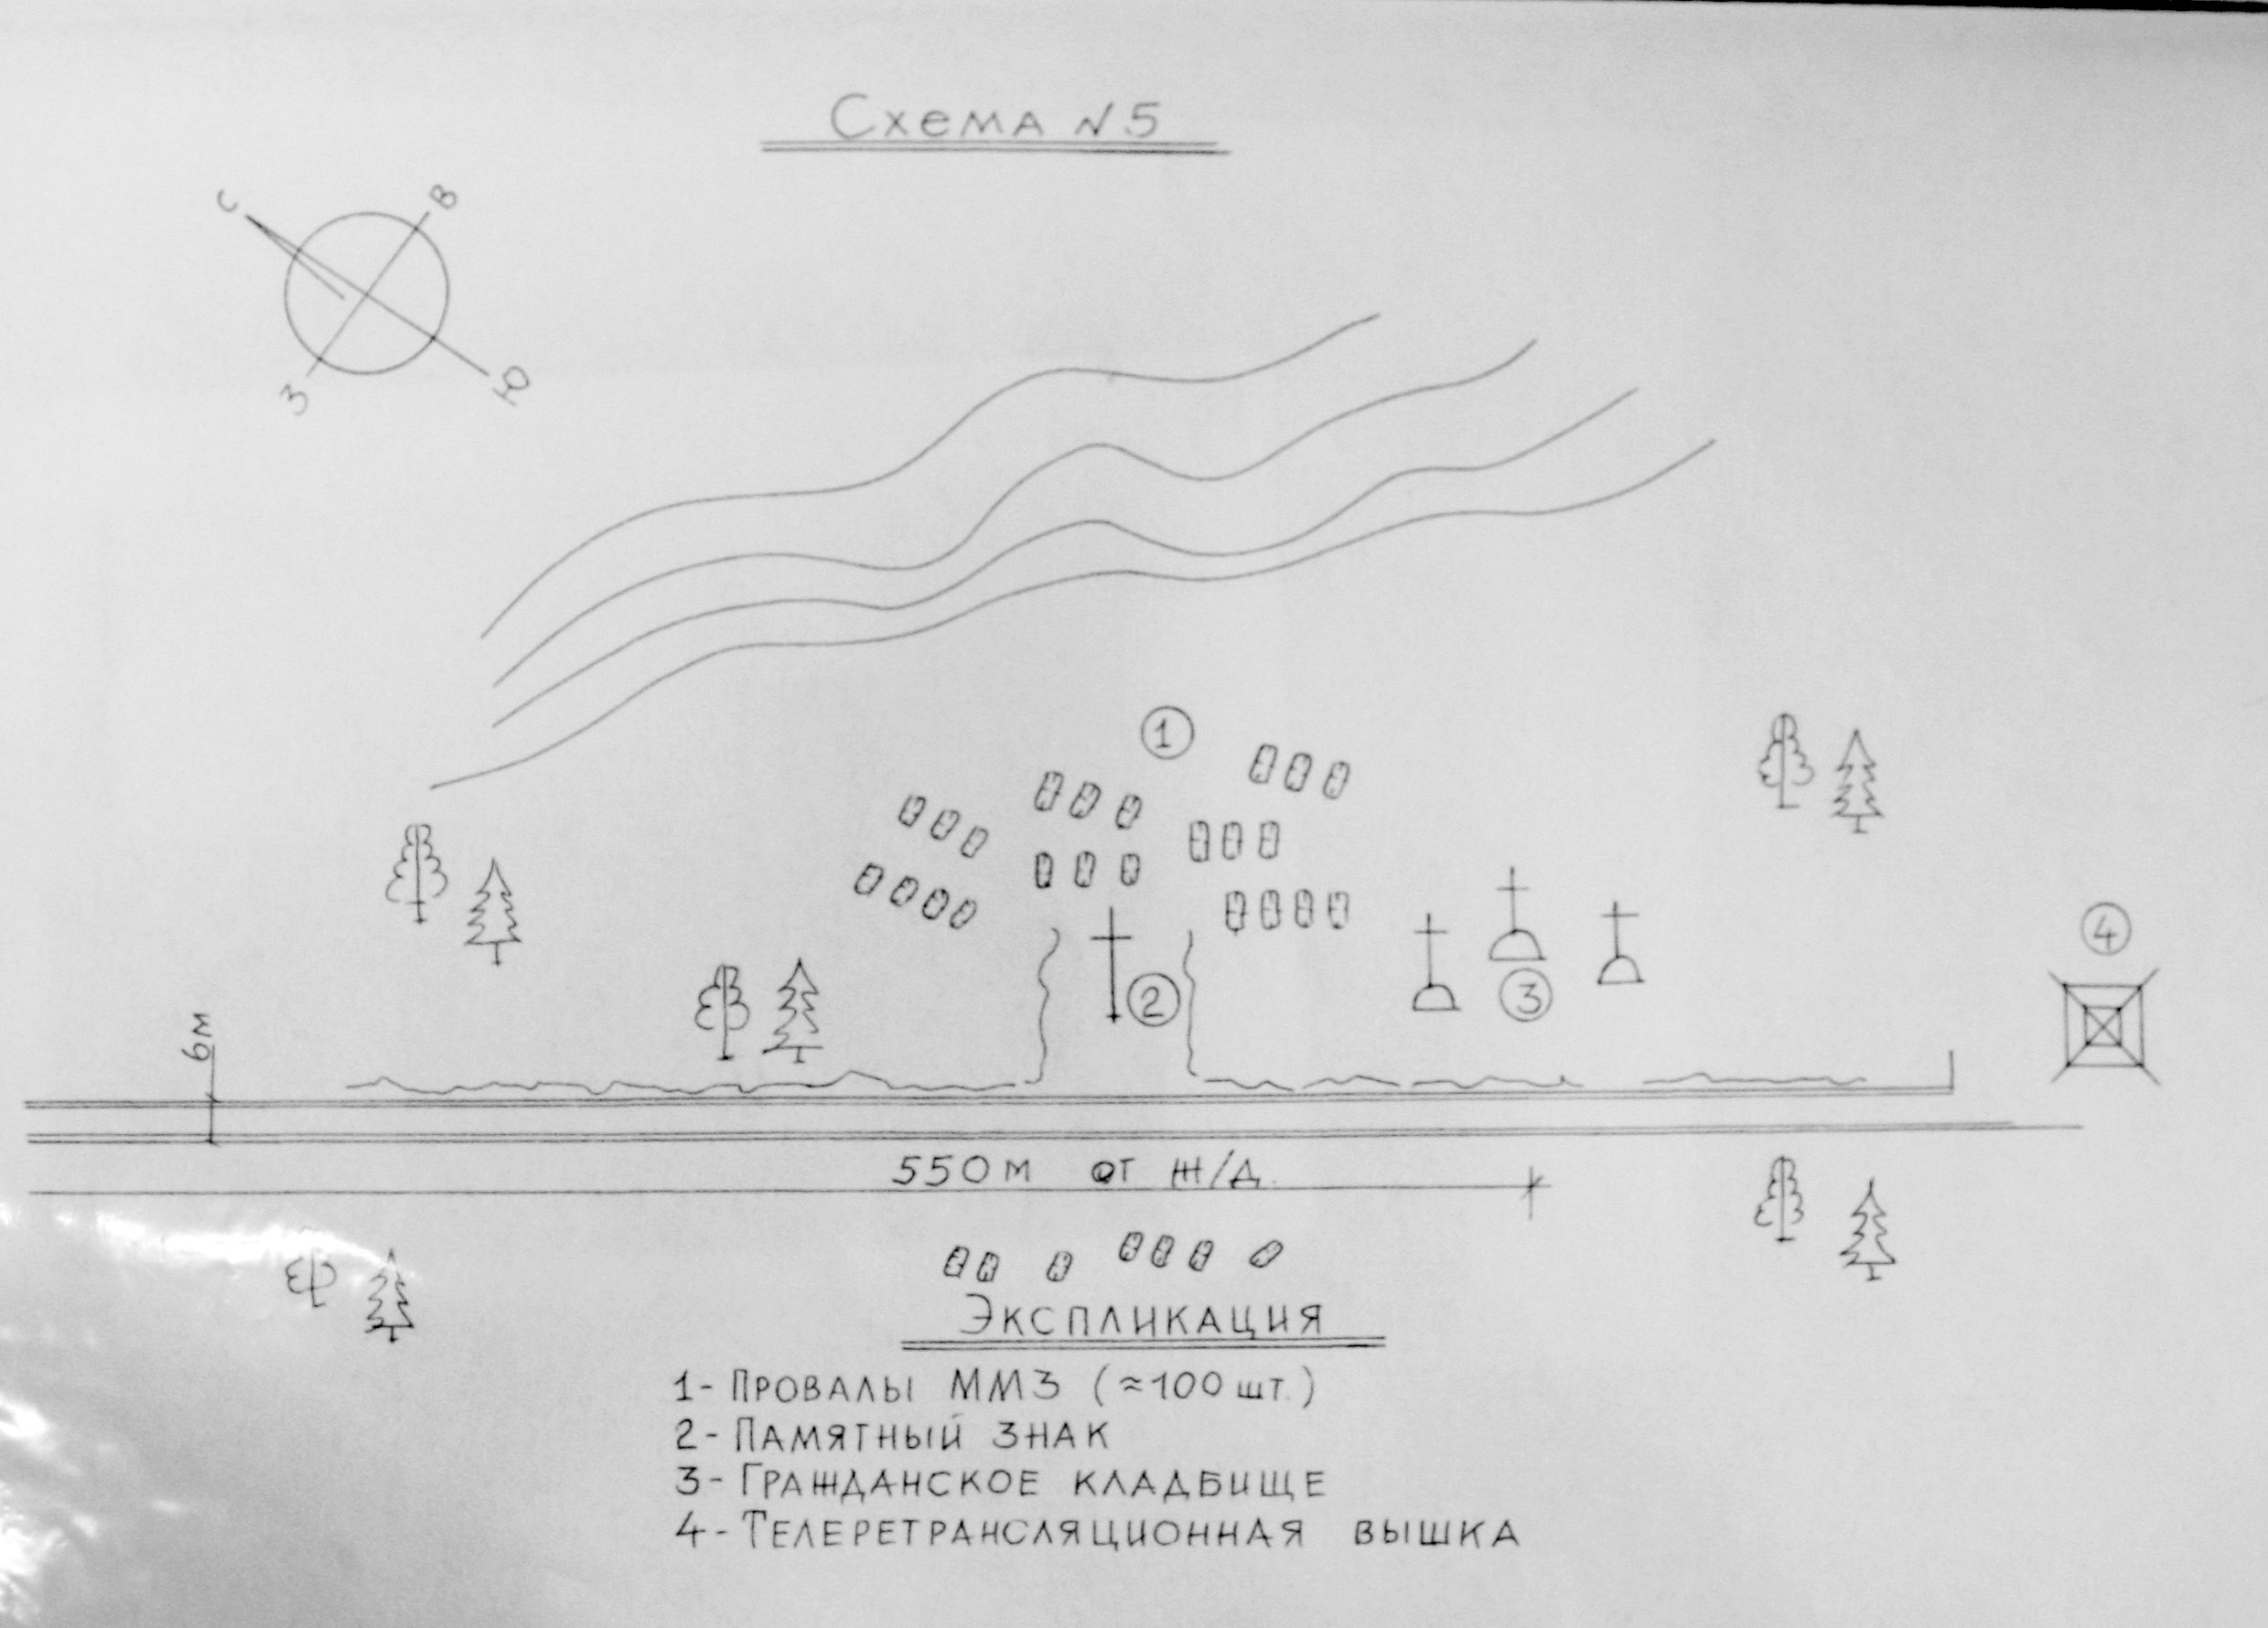 Схема N5
С
В
З
Ю
1
2
3
4
6м
550м от Ж/Д.
Экспликация
1- Провалы ММЗ (≈100 шт.)
2- Памятный знак
3- Гражданское кладбище
4- Телеретрансляционная вышка